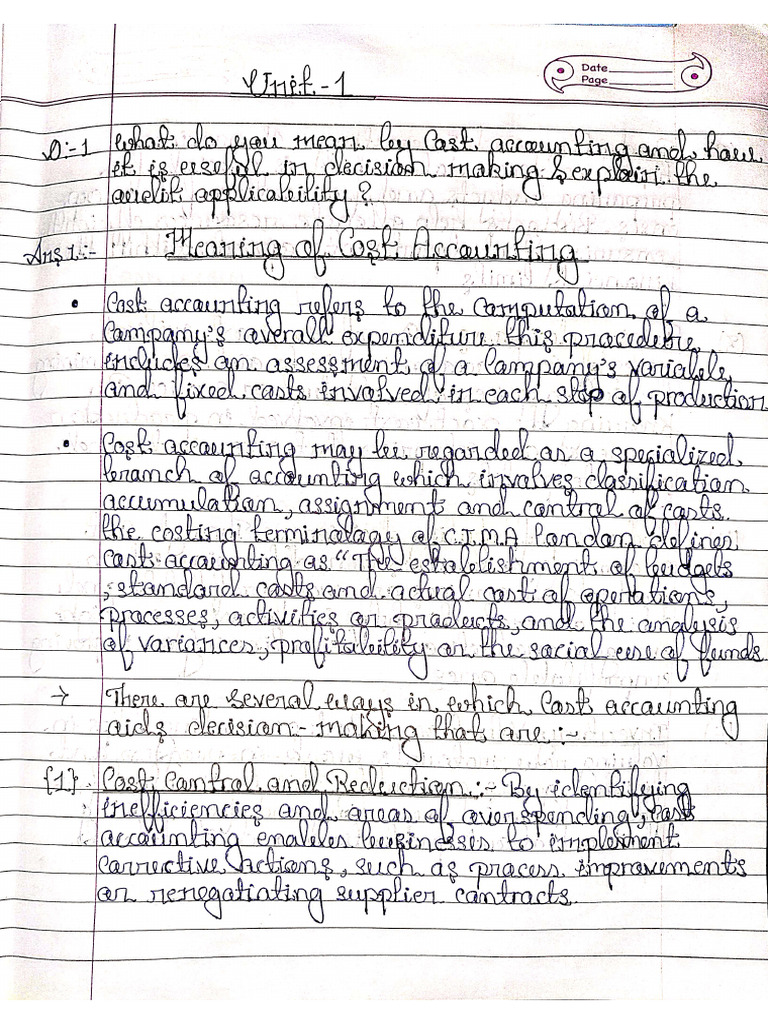 Unit-1
Date
Page
Q:-1 What do you mean by Cost accounting and how
it is useful in decision making & explain the
audit applicability?
Ans 1:- Meaning of Cost Accounting
• Cost accounting refers to the Computation of a
Company's overall expenditure this procedure
includes an assessment of a Company's variable
and fixed costs involved in each step of production
• Cost accounting may be regarded as a specialized
branch of accounting which involves classification
accumulation, assignment and control of costs.
the costing terminology of C.I.M.A London defines
cost accounting as "The establishment of budgets
, standard costs and actual cost of operations,
processes, activities or products, and the analysis
of variances, profitability or the social use of funds.
→ There are several ways in which Cost accounting
aids decision-making that are :-
{1} Cost Control and Reduction :- By identifying
inefficiencies and areas of overspending, cost
accounting enables businesses to implement
corrective actions, such as process improvements
or renegotiating supplier contracts.